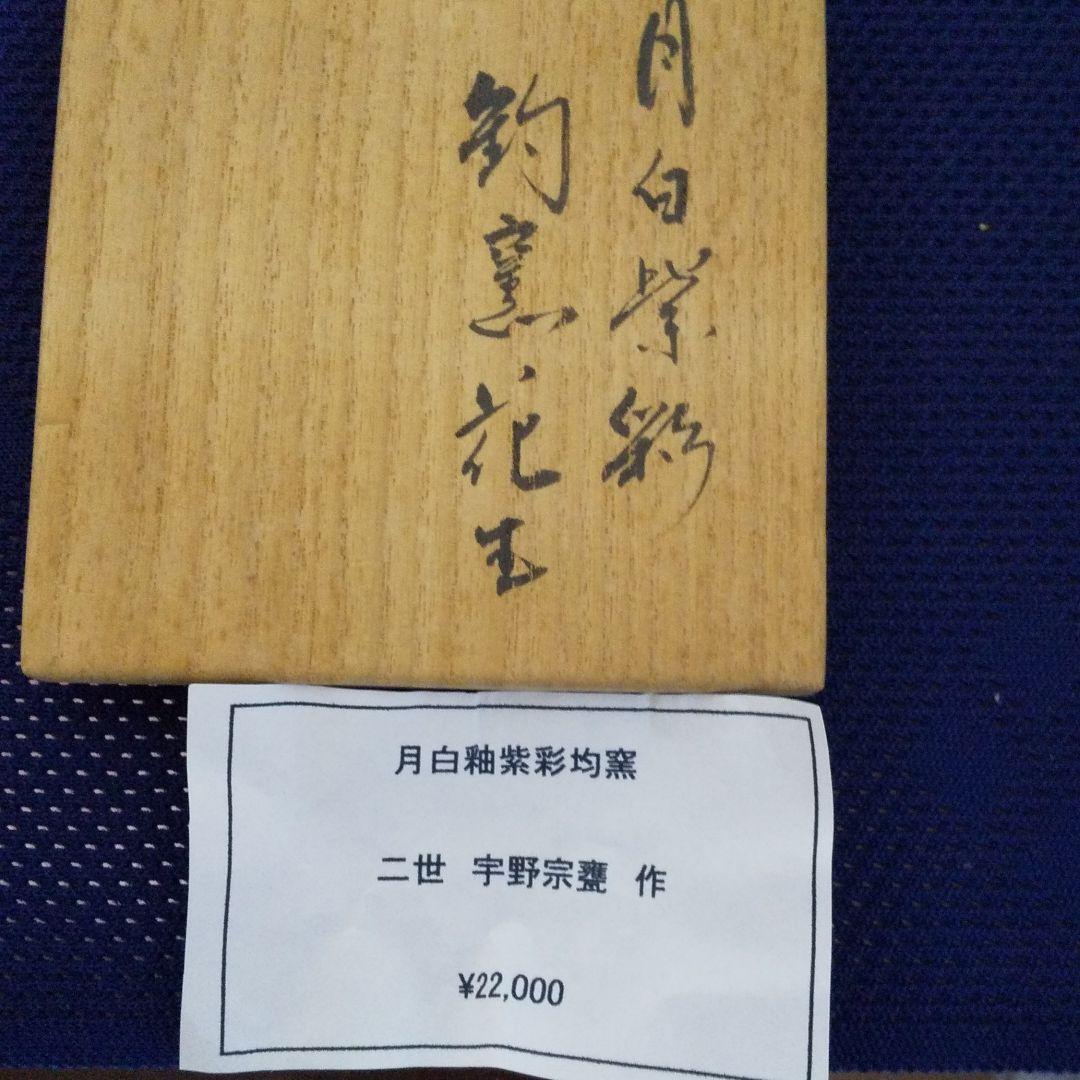 月白紫彩
鈞窯花生
月白釉紫彩均窯
二世 宇野宗甕 作
¥22,000